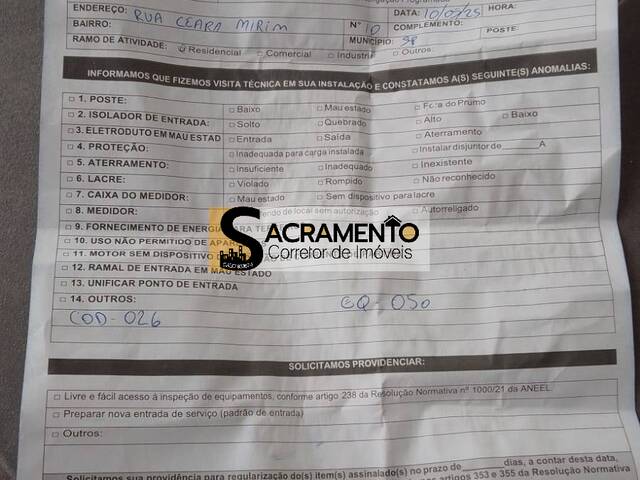 ENDEREÇO: RUA CEARA MIRIM Nº 10 DATA: 10/03/25 HORA:
BAIRRO: COMPLEMENTO:
RAMO DE ATIVIDADE: Residencial □ Comercial □ Industria MUNICÍPIO: SP PONTE:
□ Outros:
INFORMAMOS QUE FIZEMOS VISITA TÉCNICA EM SUA INSTALAÇÃO E CONSTATAMOS A(S) SEGUINTE(S) ANOMALIAS:
□ 1. POSTE: □ Baixo □ Mau estado □ Fora do Prumo
□ 2. ISOLADOR DE ENTRADA: □ Solto □ Quebrado □ Alto □ Baixo
□ 3. ELETRODUTO EM MAU ESTAD □ Entrada □ Saída □ Aterramento
□ 4. PROTEÇÃO: □ Inadequada para carga instalada □ Instalar disjuntor de______A
□ 5. ATERRAMENTO: □ Insuficiente □ Inadequado □ Inexistente
□ 6. LACRE: □ Violado □ Rompido □ Não reconhecido
□ 7. CAIXA DO MEDIDOR: □ Mau estado □ Sem dispositivo para lacre
□ 8. MEDIDOR: de local sem autorização □ Autorreligado
□ 9. FORNECIMENTO DE ENERGIA PARA
□ 10. USO NÃO PERMITIDO DE
□ 11. MOTOR SEM DISPOSITIVO
□ 12. RAMAL DE ENTRADA EM MAU ESTADO
□ 13. UNIFICAR PONTO DE ENTRADA
□ 14. OUTROS: GQ-050
COD-026
SACRAMENTO
Corretor de Imóveis
SOLICITAMOS PROVIDENCIAR:
□ Livre e fácil acesso à inspeção de equipamentos, conforme artigo 238 da Resolução Normativa nº 1000/21 da ANEEL
□ Preparar nova entrada de serviço (padrão de entrada)
□ Outros:
Solicitamos sua providência para regularização do(s) item(s) assinalado(s) no prazo de________dias, a contar desta data,
artigos 353 e 355 da Resolução Normativa